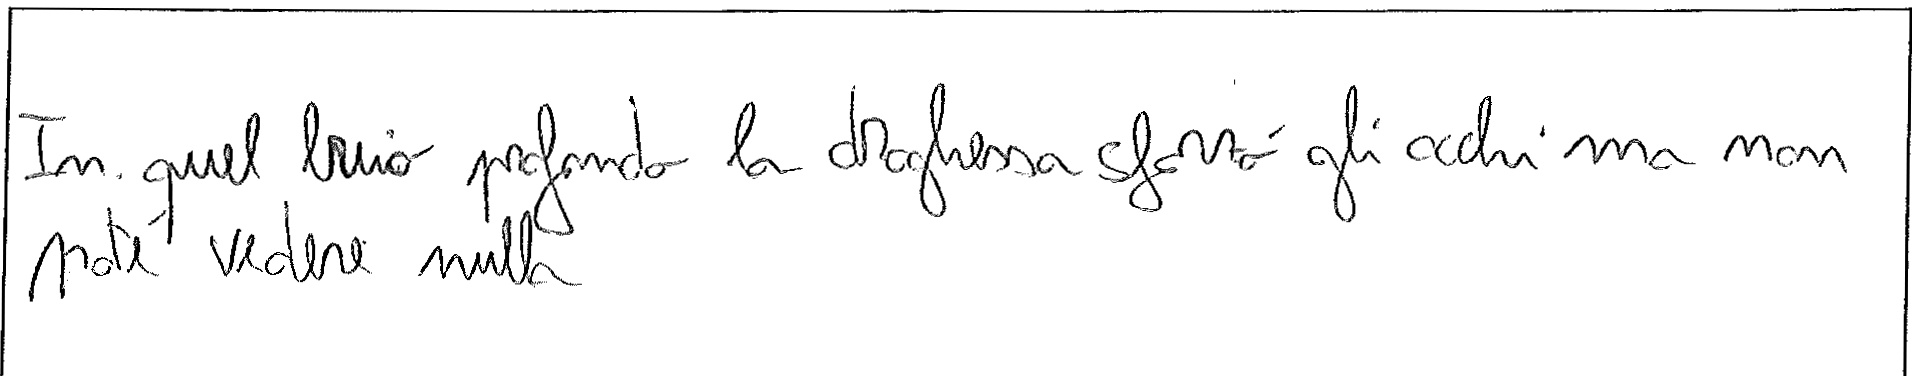 In. quel buio profondo la draghessa sforzò gli occhi ma non
poté vedere nulla